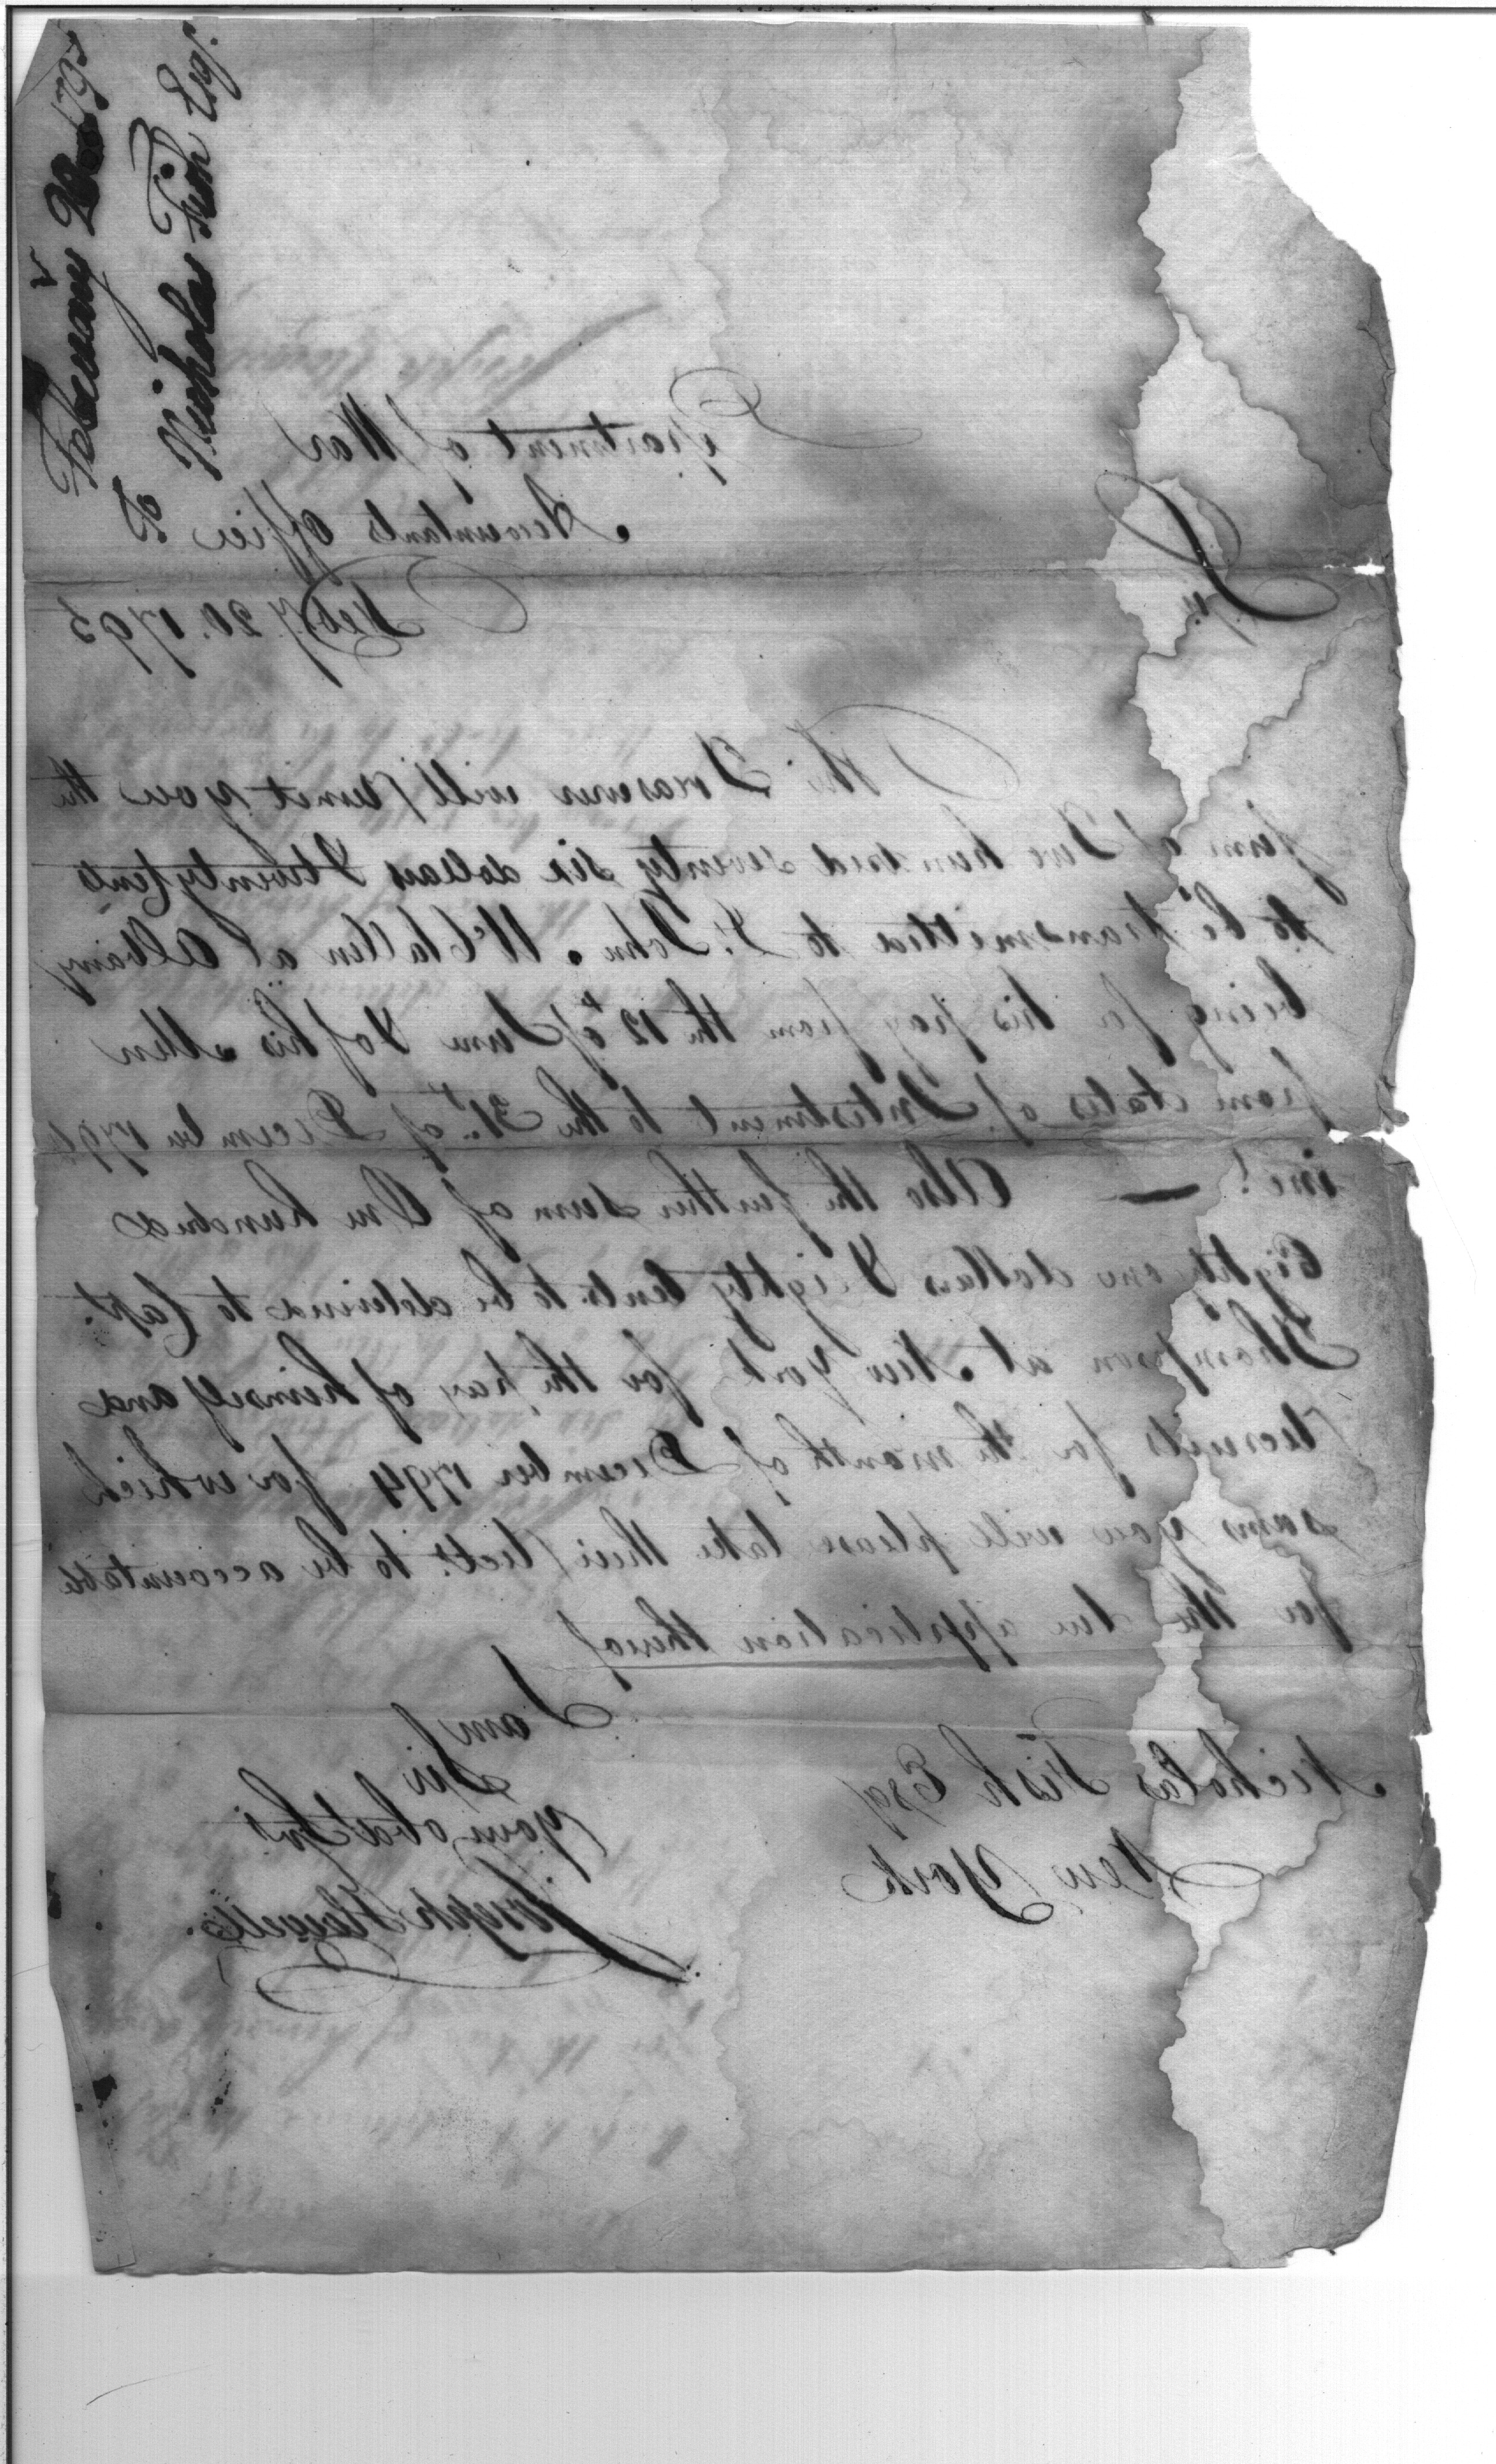 February 20 1795
To
Nicholas Fish Esq.
Department of War
Accountants Office
Feby. 20. 1795
Sir
The Treasurer will remit you the
sum of Two hundred seventy six dollars & twenty Cents
to be transmitted to Lt. John McClallen at Albany
being for his pay from the 12th of June & of his Men
from dates of Inlistment to the 31st. of December 1794
incl. — Also the further sum of One hundred
Eighty one dollars & eighty Cents to be delivered to Capt.
Thompson at New York for the pay of himself and
recruits for the month of December 1794 for which
sums you will please take their rects. to be accountable
for the due application thereof
I am
Sir
Your obdt Srt
Joseph Howell
Nicholas Fish Esq
New York